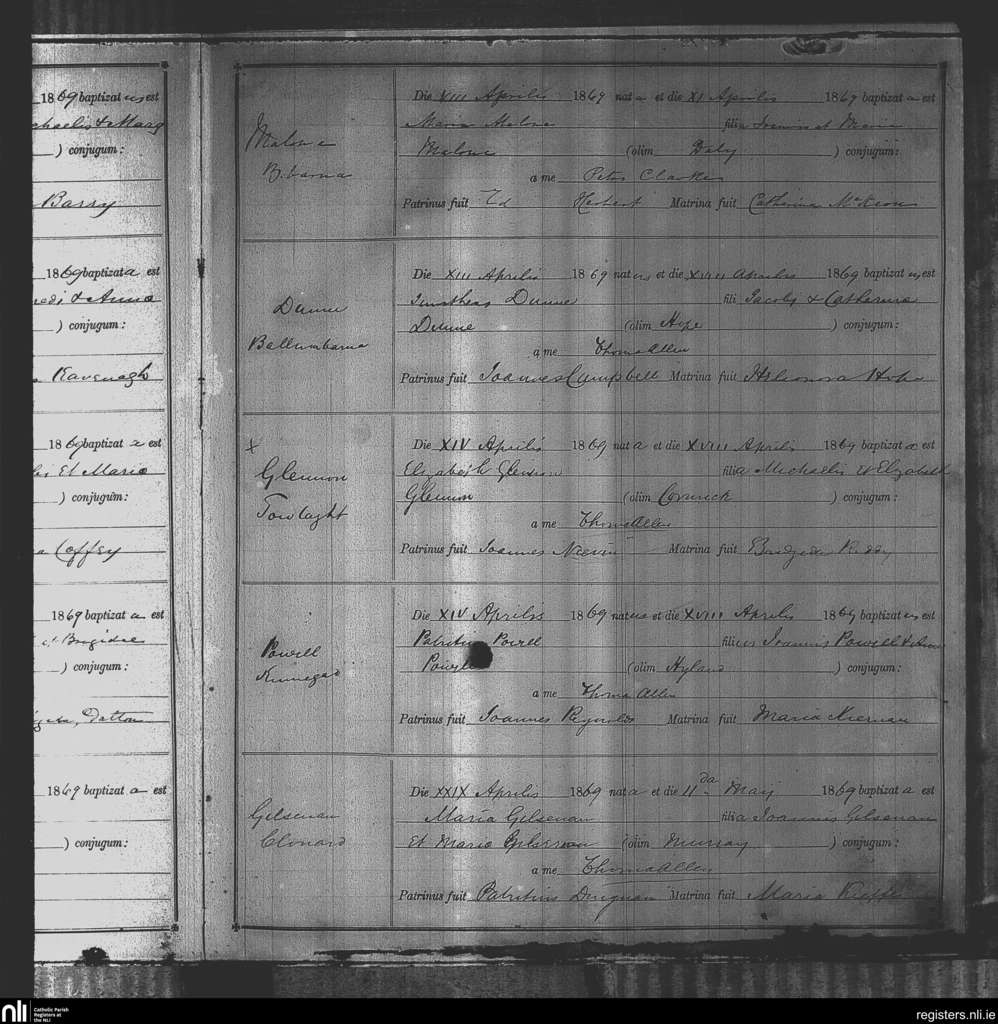 1869 baptizat us est
& Marg
) conjugum:
Barry
1869 baptizat a est
& Anna
) conjugum:
Kavenagh
1869 baptizat a est
Et Maria
) conjugum:
Coffey
1869 baptizat a est
Brigidae
) conjugum:
Dalton
1869 baptizat a est
) conjugum:
Malone
Die XIII Aprilis 1869 nat a et die XI Aprilis 1869 baptizat a est
Maria Malone filia Joannis et Maria
Malone (olim Daly ) conjugum:
a me Peter Clarke
Patrinus fuit Ed Herbert Matrina fuit Catherina McKeon
Dunne
Die XIII Aprilis 1869 nat us et die XVIII Aprilis 1869 baptizat us est
Dunne fili Jacobi & Catherina
Dunne (olim Hope ) conjugum:
a me Thoma Allen
Patrinus fuit Joannes Campbell Matrina fuit Heleonora Hope
x
Glennon
Towlaght
Die XIV Aprilis 1869 nat a et die XVIII Aprilis 1869 baptizat a est
Elizabeth Glennon filia Michaelis Et Elizabeth
Glennon (olim Cormick ) conjugum:
a me Thoma Allen
Patrinus fuit Joannes Nievin Matrina fuit Bridgida Ruddy
Powell
Kinnegad
Die XIV Aprilis 1869 nat us et die XVIII Aprilis 1869 baptizat us est
Powell filius Joannis Powell &
(olim Hyland ) conjugum:
a me Thoma Allen
Patrinus fuit Joannes Reynolds Matrina fuit Maria Kiernan
Gelsenan
Clonard
Die XXIX Aprilis 1869 nat a et die 11 da May 1869 baptizat a est
Maria Gelsenan filia Joannis Gelsenan
Et Maria Gelsenan (olim Murray ) conjugum:
a me Thoma Allen
Patrinus fuit Patritius Duignan Matrina fuit Maria
nli Catholic Parish
Registers at
the NLI
registers.nli.ie